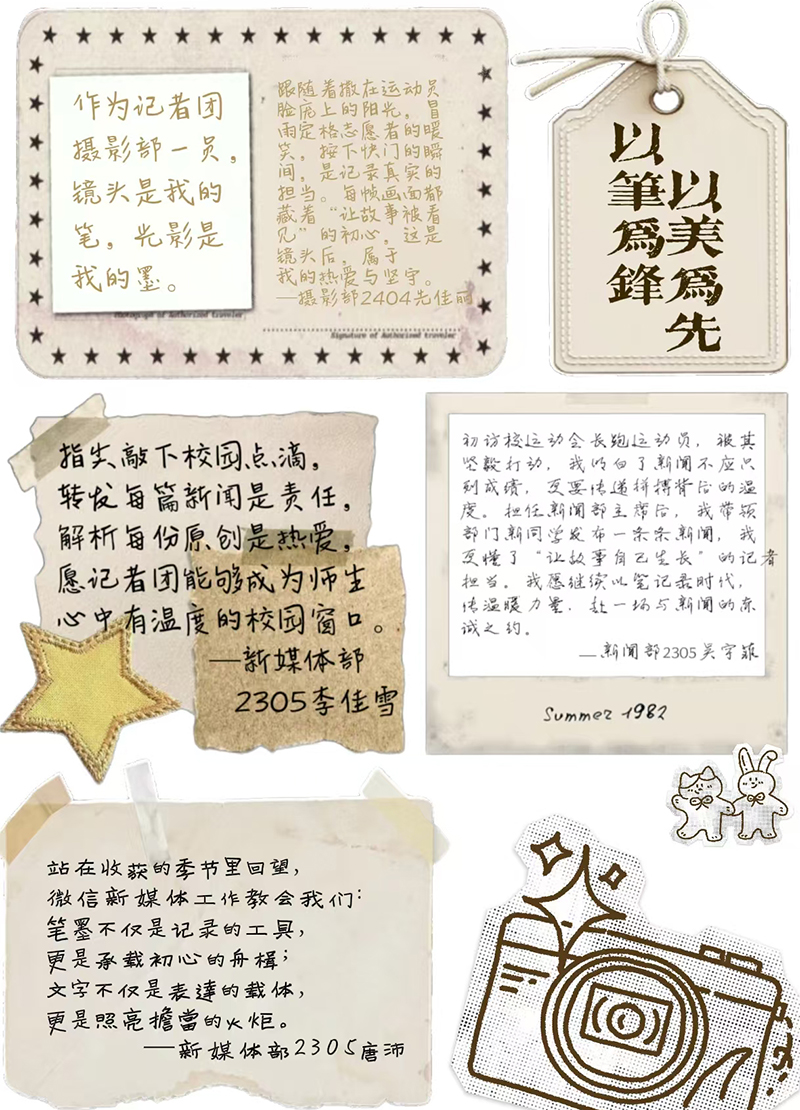 作为记者团
摄影部一员，
镜头是我的
笔，光影是
我的墨。
跟随着撒在运动员
脸庞上的阳光，冒
雨定格志愿者的暖
笑，按下快门的瞬
间，是记录真实的
担当。每帧画面都
藏着“让故事被看
见”的初心，这是
镜头后，属于
我的热爱与坚守。
—摄影部2404先佳丽
Photograph of Authorized traveler
Signature of Authorized traveler
以美為先
以筆為鋒
指尖敲下校园点滴，
转发每篇新闻是责任，
解析每份原创是热爱，
愿记者团能够成为师生
心中有温度的校园窗口。
—新媒体部
2305李佳雪
初访校运动会长跑运动员，被其
坚毅打动，我明白了新闻不应只
到成绩，更要传递拼搏背后的温
度。担任新闻部主席后，我带领
部门新同学发布一条条新闻，我
更懂了“让故事自己生长”的记者
担当。我愿继续以笔记录时代，
传温暖力量，赴一场与新闻的赤
诚之约。
—新闻部2305吴宇菲
Summer 1982
站在收获的季节里回望，
微信新媒体工作教会我们：
笔墨不仅是记录的工具，
更是承载初心的舟楫；
文字不仅是表達的载体，
更是照亮擔當的火炬。
—新媒体部2305唐沛